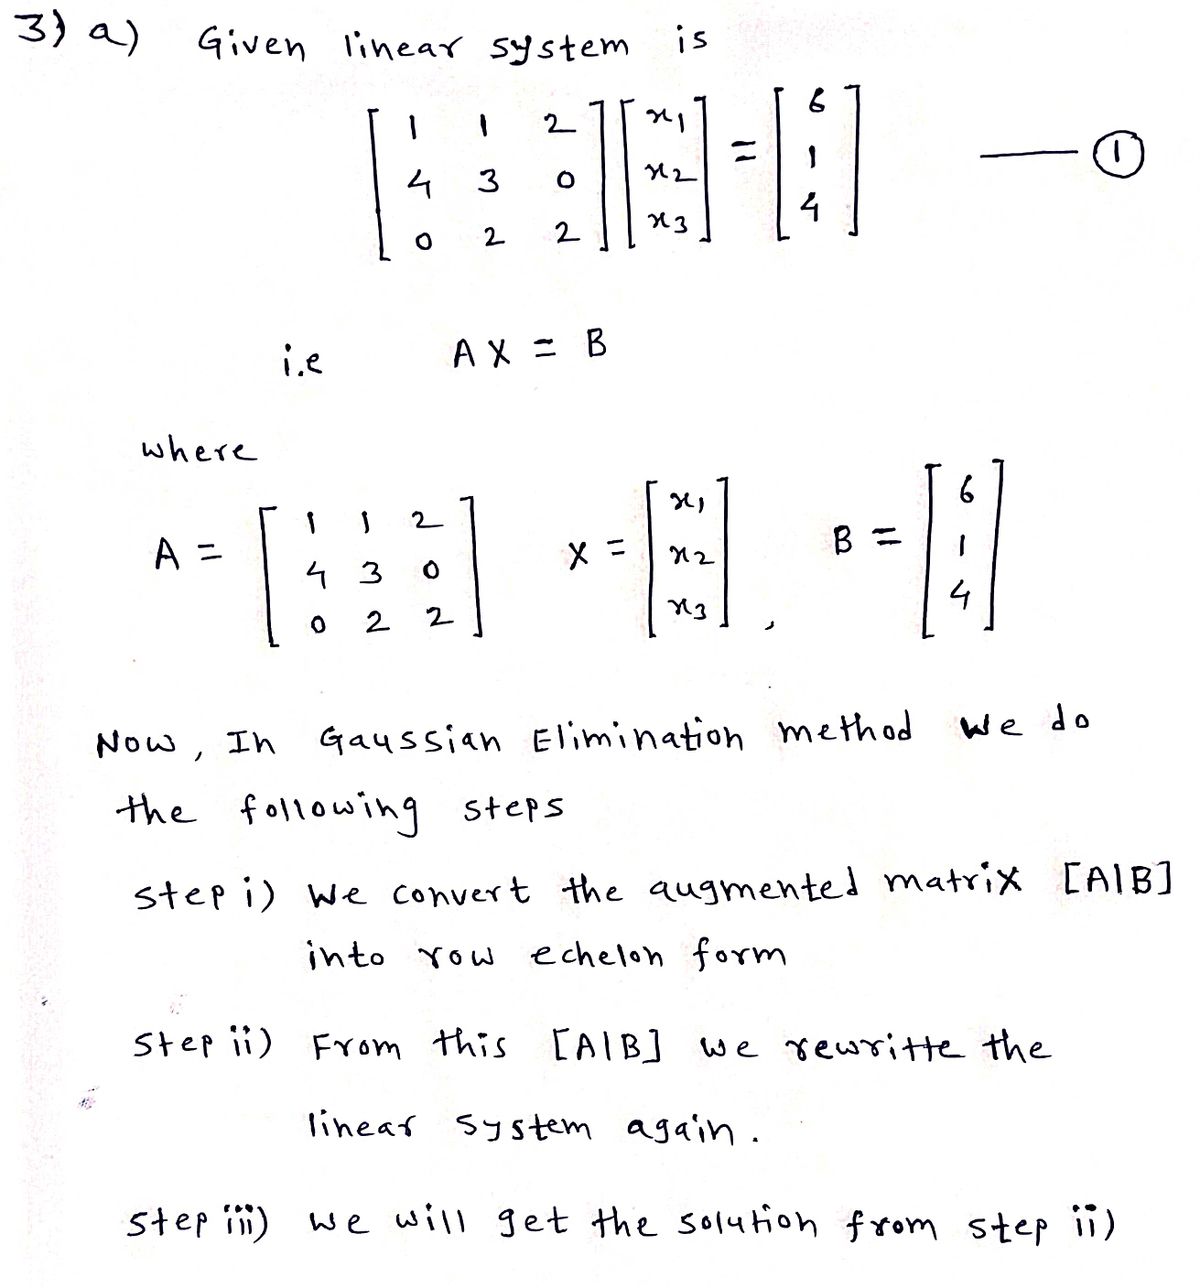 3) a) Given linear system is
[ 1 1 2 ] [ x1 ] = [ 6 ] —— ①
[ 4 3 0 ] [ x2 ] [ 1 ]
[ 0 2 2 ] [ x3 ] [ 4 ]
i.e AX = B
where
A = [ 1 1 2 ] X = [ x1 ] B = [ 6 ]
[ 4 3 0 ] [ x2 ] [ 1 ]
[ 0 2 2 ] [ x3 ] , [ 4 ]
Now, In Gaussian Elimination method we do
the following steps
step i) We convert the augmented matrix [A|B]
into row echelon form
step ii) From this [A|B] we rewritte the
linear system again.
step iii) we will get the solution from step ii)